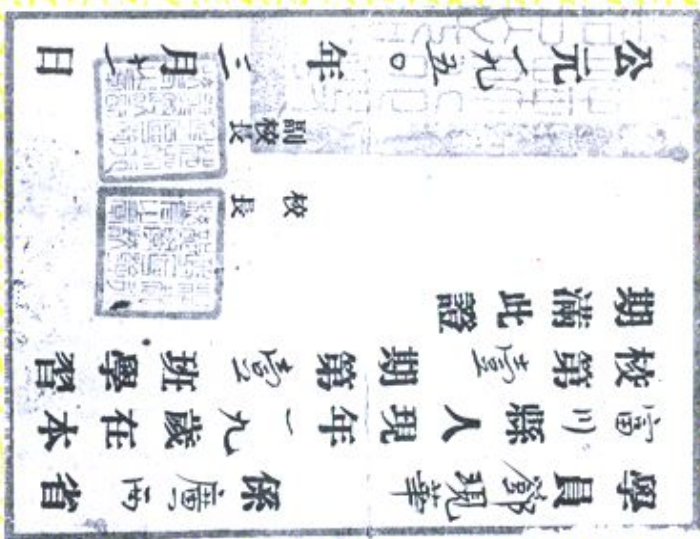 學員鄧現華係廣西省
富川縣人現年一九歲在本
校第壹期第壹班學習
期滿此證
校長
副校長
公元一九五〇年三月十一日